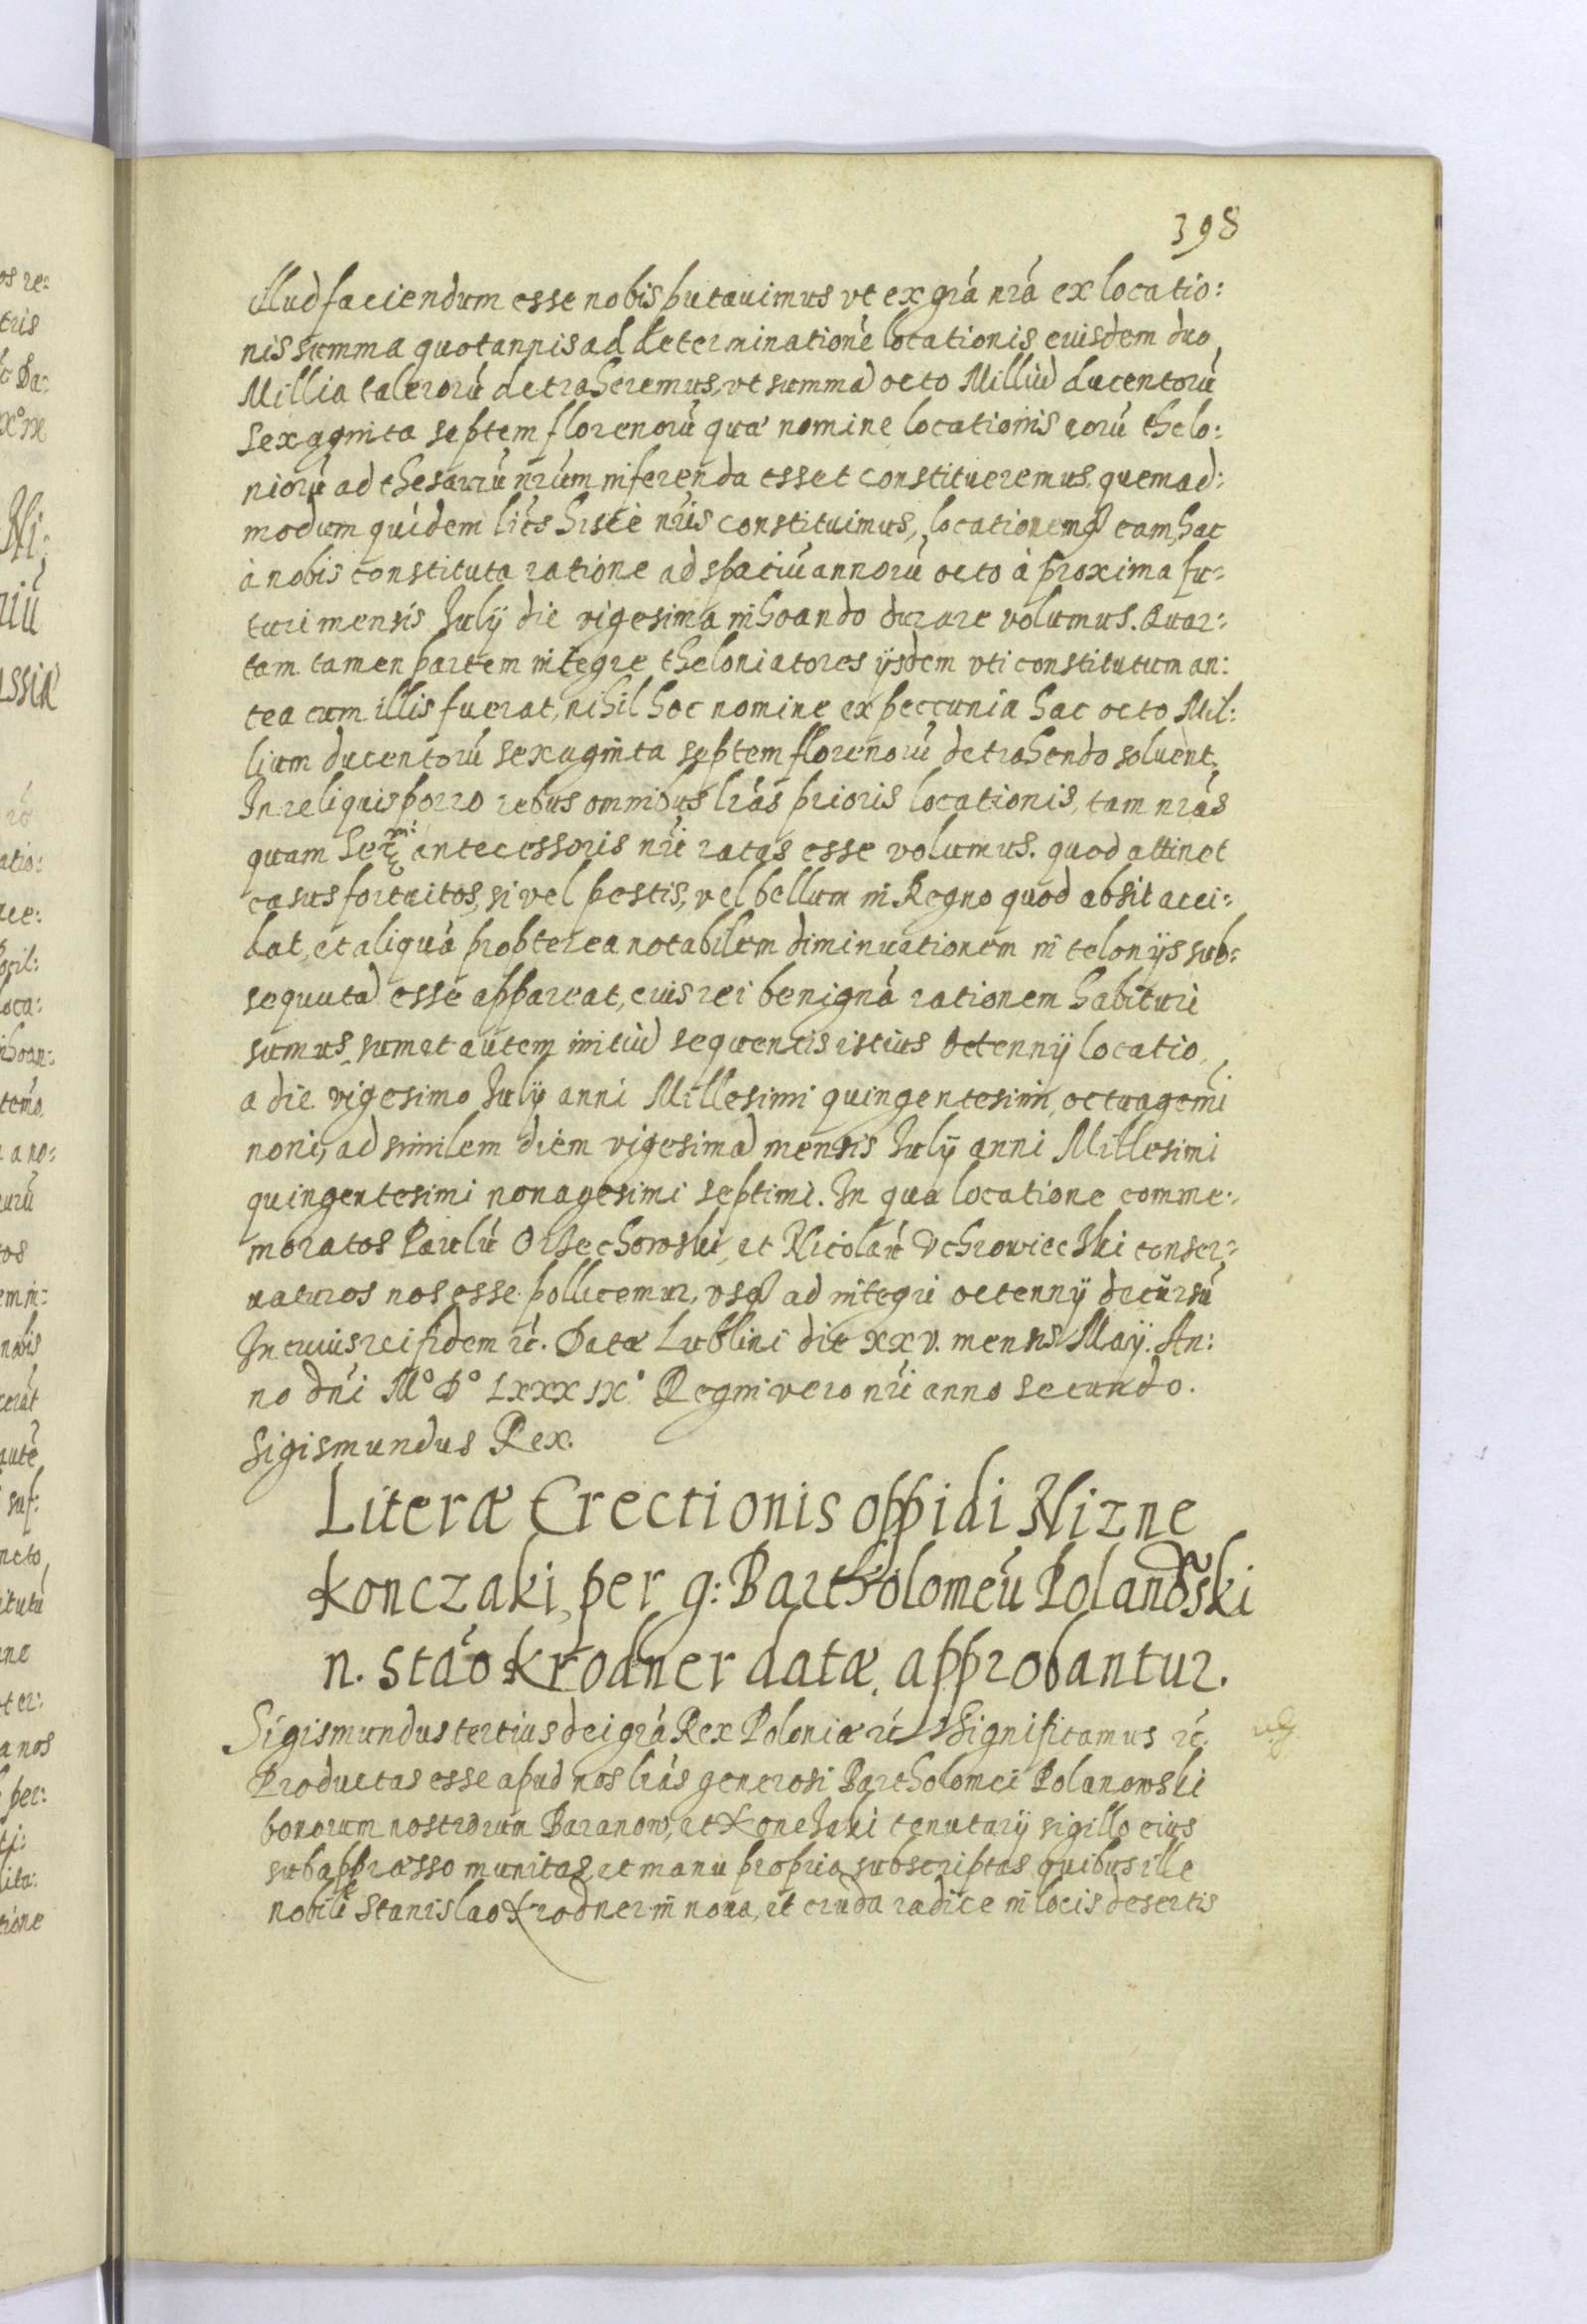 398
illud faciendum esse nobis putauimus vt ex grã nrã ex locatio:
nis summa quotannis ad determinationẽ locationis eiusdem duo
Millia talerorũ detraheremus, vt summã octo Milliũ ducentorũ
sexaginta septem florenorũ quæ nomine locationis eorũ thelo:
niorũ ad thesaurũ nrũm inferenda esset constitueremus. quemad:
modum quidem lits hisce nris constituimus, locationemq3 eam, hac
à nobis constituta ratione ad spatiũ annorũ octo à proxima fu:
turi mensis Julÿ die vigesima inhoando durare volumus. Quar:
tam tamen partem integre theloniatores ÿsdem vti constitutum an:
tea cum illis fuerat, nihil hoc nomine ex peccunia hac octo Mil:
lium ducentorũ sexaginta septem florenorũ detrahendo soluent.
In reliquis porro rebus omnibus lrãs prioris locationis, tam nrãs
quam Ser mi antecessoris nri ratas esse volumus. quod attinet
casus fortuitos, si vel pestis, vel bellum in Regno quod absit acci:
dat, et aliquã propterea notabilem diminuationem in telonÿs sub:
sequutã esse appareat, eius rei benignã rationem habituri
sumus, sumet autem initiũ sequentis istius octennÿ locatio,
a die vigesimo Julÿ anni Millesimi quingentesimi, octuagesimi
noni, ad similem diem vigesimã mensis Julÿ anni Millesimi
quingentesimi nonagesimi septimi. In qua locatione comme:
moratos Paulũ Orzechowski, et Nicolaũ Vchrowiecski conser:
uaturos nos esse pollicemur, vsq3 ad integri octennÿ decursũ
In cuius rei fidem rc̃. Datæ Lublini die xxv. mensis Maÿ. An:
no dni Mo Do Lxxx ixo Regni vero nri anno secundo.
Sigismundus Rex.
Literæ Erectionis oppidi Nizne
Konczaki, per g: Bartholomeũ Polanowski
n. stão Krodner datæ, approbantur.
Sigismundus tertius dei grã Rex Poloniæ rc̃ Significamus rc̃.
Productas esse apud nos lrãs generosi Bartholomei Polanowski
bonorum nostrorum Baranow, et Konchaki tenutarÿ sigillo eius
subappræsso munitas, et manu propria subscriptas quibus ille
nobili Stanislao Krodner in noua, et cruda radice in locis desertis